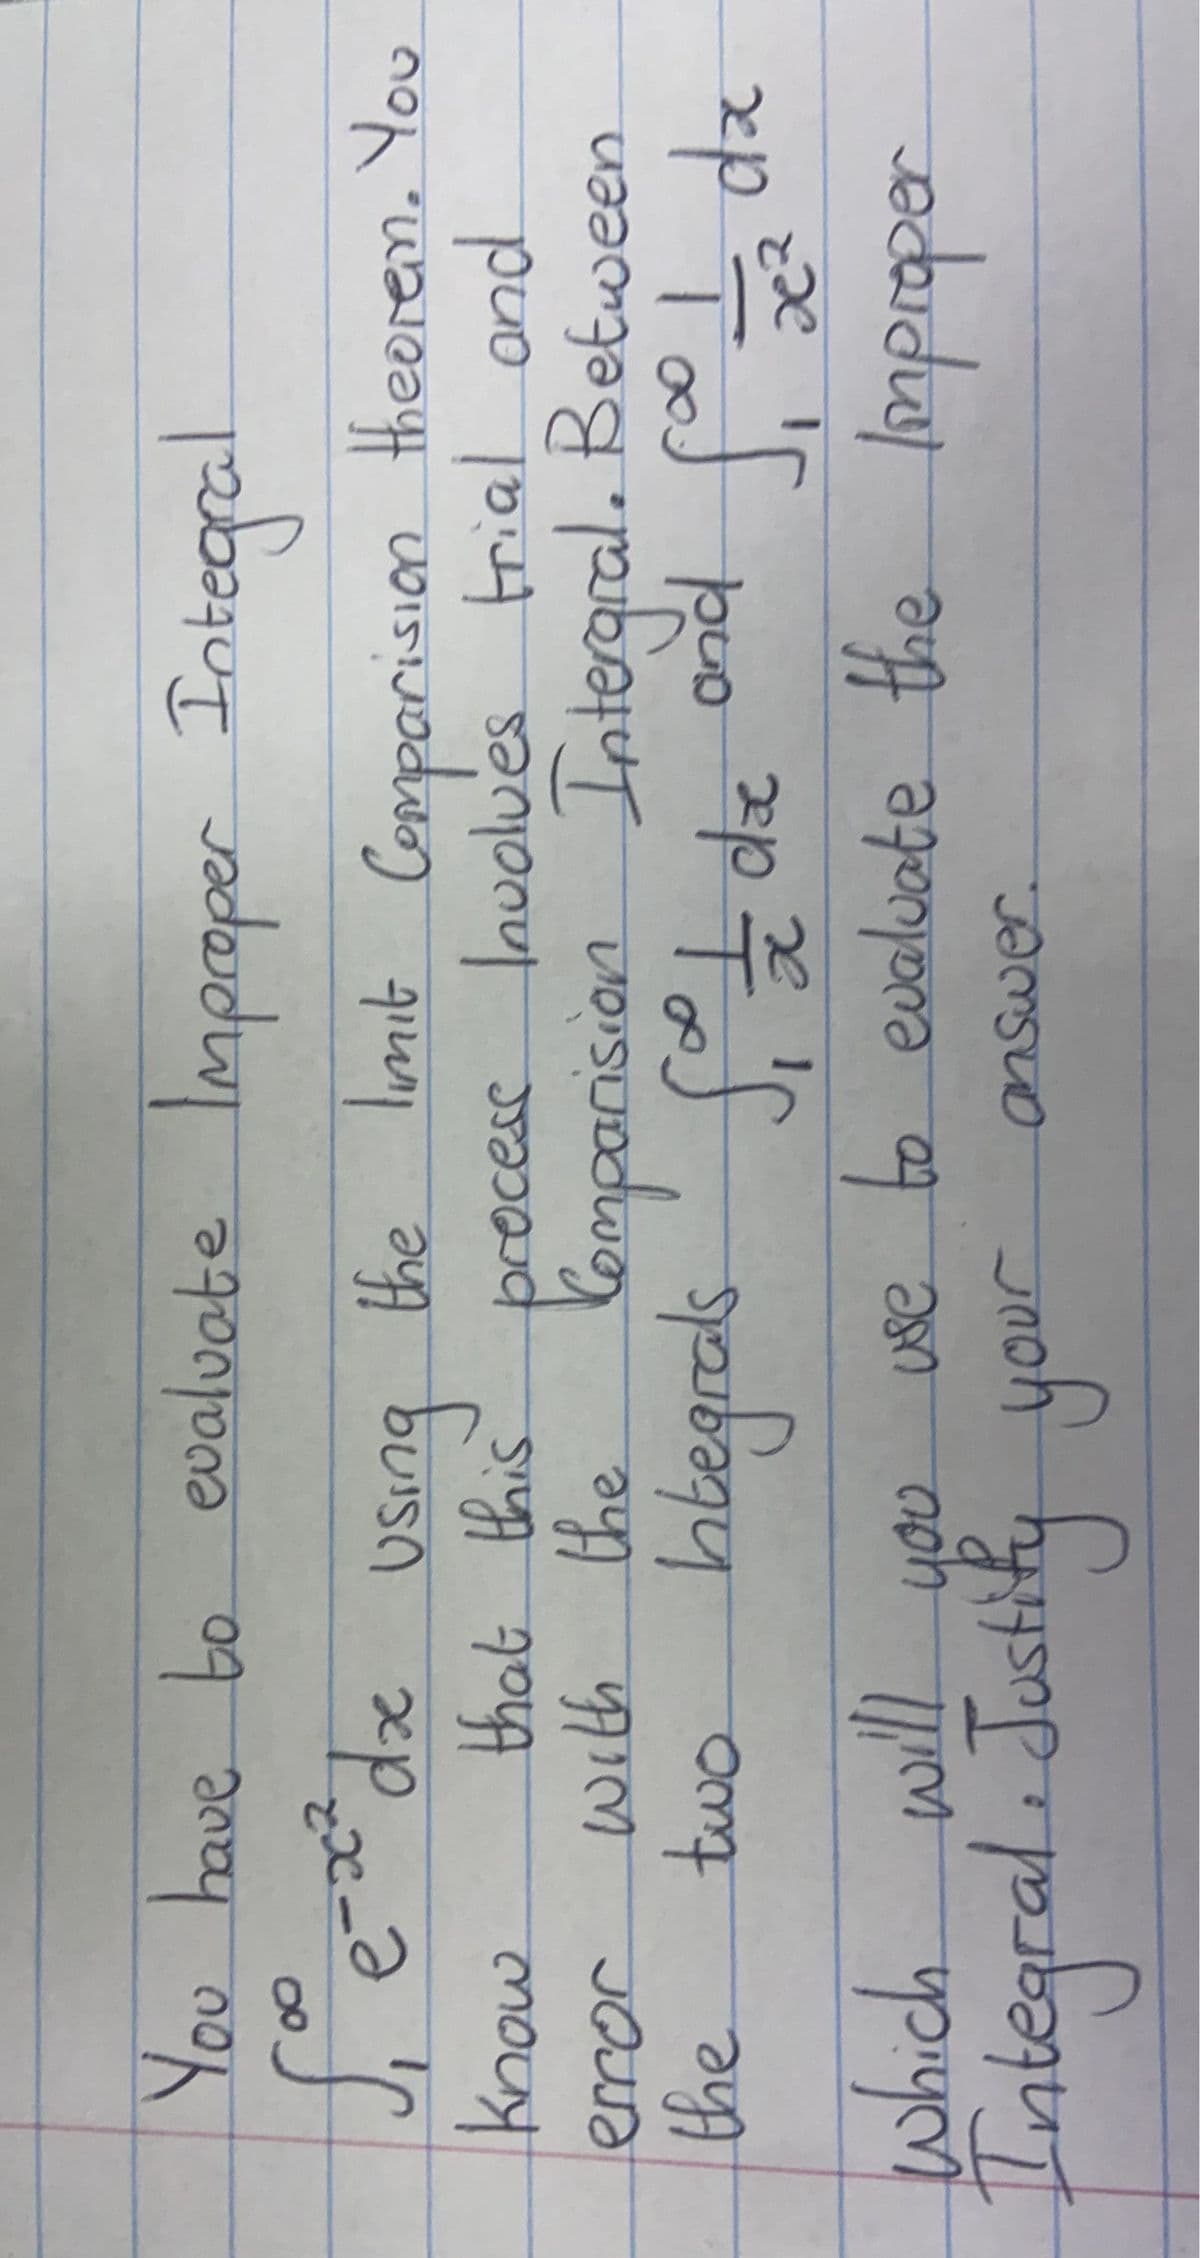 You have to evaluate Improper Integral
∫₁^∞ e^{-x²} dx using the limit Comparision theorem. You
know that this process Involves trial and
error with the Comparision Intergral. Between
the two Integrals ∫₁^∞ 1/x dx and ∫₁^∞ 1/x² dx
which will you use to evaluate the Improper
Integral. Justify your answer.